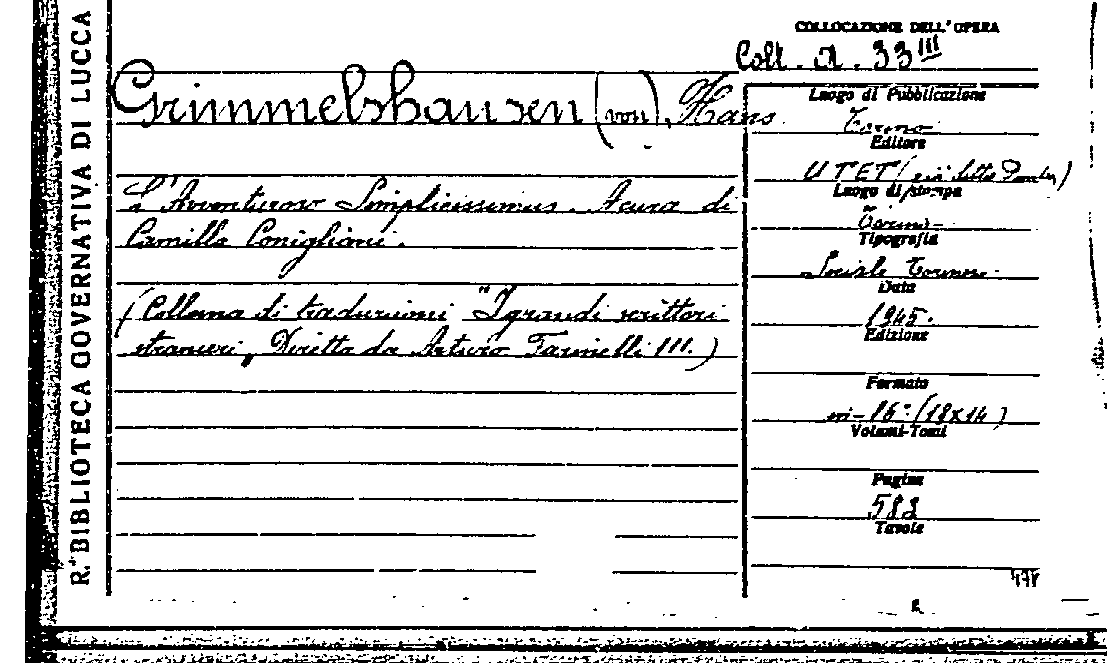 R.ª BIBLIOTECA GOVERNATIVA DI LUCCA
COLLOCAZIONE DELL'OPERA
Coll. A. 33 III
Grimmelshausen (von), Hans
L'Avventuroso Simplicissimus. A cura di
Camilla Coniglioni.
(Collana di traduzioni "I grandi scrittori
stranieri" Diretta da Arturo Farinelli 111.)
Luogo di Pubblicazione
Torino
Editore
UTET (già ditta Pomba)
Luogo di stampa
Torino
Tipografia
Sociale Torinese
Data
1945.
Edizione
Formato
in-16° (18x14)
Volumi-Tomi
Pagine
Tavole